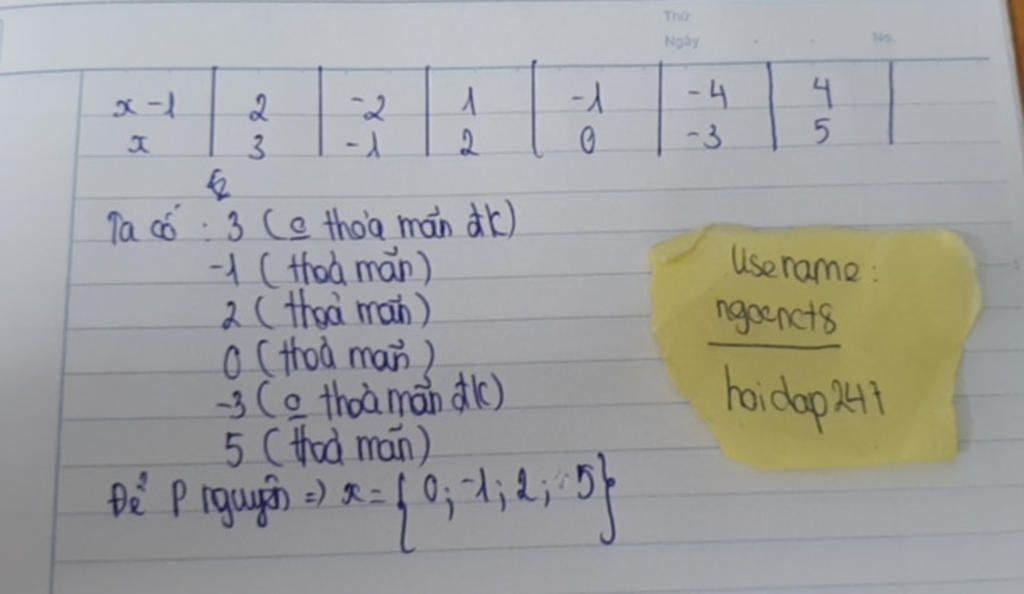 Thứ
Ngày No.
x-1 | 2 | -2 | 1 | -1 | -4 | 4 |
x | 3 | -1 | 2 | 0 | -3 | 5 |
Ta có : 3 (o thoả mãn đk)
-1 (thoả mãn)
2 (thoả mãn)
0 (thoả mãn)
-3 (o thoả mãn đk)
5 (thoả mãn)
Để P nguyên => x = { 0; -1; 2; 5}
Usename:
ngocnct8
hoidap247